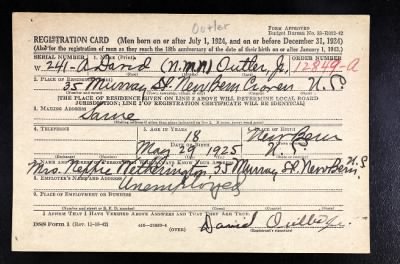 Outler
FORM APPROVED
REGISTRATION CARD (Men born on or after July 1, 1924, and on or before December 31, 1924)
(Also for the registration of men as they reach the 18th anniversary of the date of their birth on or after January 1, 1943.)
ORDER NUMBER
W. 241-A David (N.M.N) Outler, Jr. 12849-A
2. PLACE OF RESIDENCE
35 Murray St New Bern Craven N. C.
[THE PLACE OF RESIDENCE GIVEN ON LINE 2 ABOVE WILL DETERMINE LOCAL BOARD
JURISDICTION; LINE 2 OF REGISTRATION CERTIFICATE WILL BE IDENTICAL]
3. MAILING ADDRESS
Same
4. TELEPHONE 5. AGE IN YEARS 6. PLACE OF BIRTH
18 New Bern
DATE OF BIRTH
May 29 1925 N. C.
Mrs. 35 Murray St. New Bern, N.C.
8. EMPLOYER'S NAME AND ADDRESS
Unemployed
9. PLACE OF EMPLOYMENT OR BUSINESS
I AFFIRM THAT I HAVE VERIFIED ABOVE ANSWERS AND THAT THEY ARE TRUE.
DSS Form 1 (Rev. 11-16-42) (OVER) David Outler Jr.